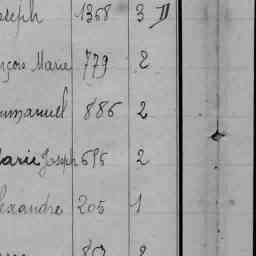 oseph 1368 3 D
nçois Marie 779 2
mmanuel 886 2
Marie Joseph 595 2
lexandre 205 1